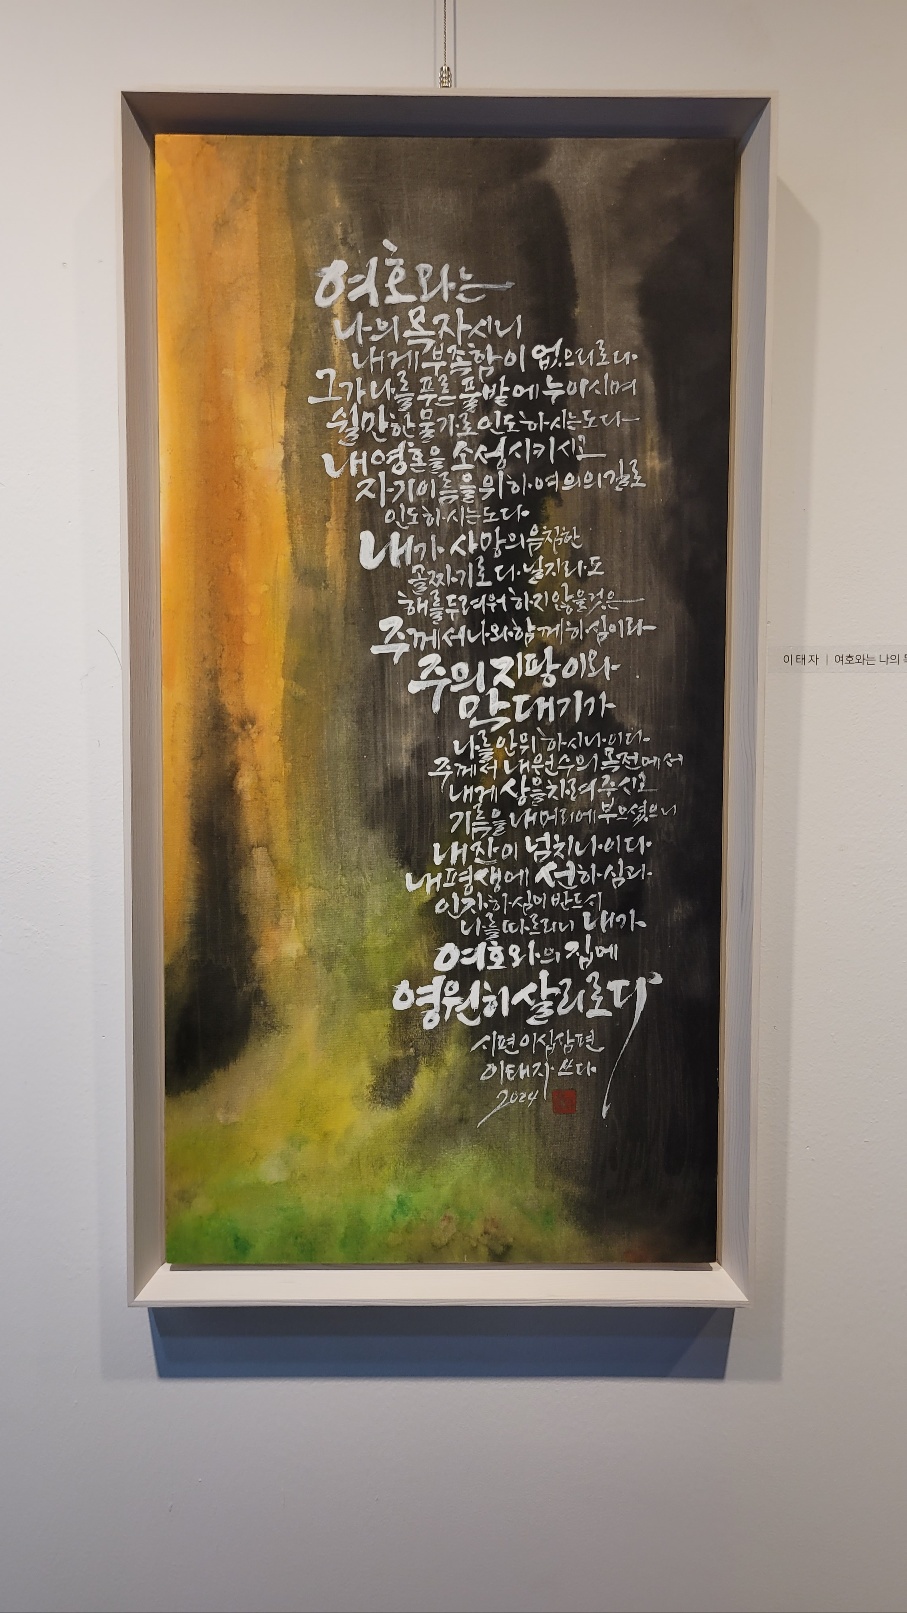 여호와는
나의 목자시니
내게 부족함이 없으리로다
그가 나를 푸른 풀밭에 누이시며
쉴만한 물가로 인도하시는도다
내 영혼을 소생시키시고
자기 이름을 위하여 의의 길로
인도하시는도다
내가 사망의 음침한
골짜기로 다닐지라도
해를 두려워하지 않을 것은
주께서 나와 함께 하심이라
주의 지팡이와
막대기가
나를 안위하시나이다
주께서 내 원수의 목전에서
내게 상을 차려 주시고
기름을 내 머리에 부으셨으니
내 잔이 넘치나이다
내 평생에 선하심과
인자하심이 반드시
나를 따르리니 내가
여호와의 집에
영원히 살리로다
시편 이십삼편
이태자 쓰다
2024
이태자 | 여호와는 나의